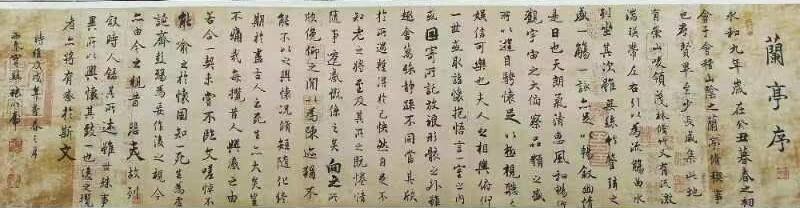 蘭亭序
永和九年歲在癸丑暮春之初
會于會稽山陰之蘭亭脩稧事
也群賢畢至少長咸集此地
有崇山峻領茂林脩竹又有清流激
湍暎帶左右引以為流觴曲水
列坐其次雖無絲竹管弦之
盛一觴一詠亦足以暢敘幽情
是日也天朗氣清惠風和暢仰
觀宇宙之大俯察品類之盛
所以遊目騁懷足以極視聽之
娛信可樂也夫人之相與俯仰
一世或取諸懷抱悟言一室之內
或因寄所託放浪形骸之外雖
趣舍萬殊靜躁不同當其欣
於所遇暫得於己快然自足不
知老之將至及其所之既惓情
隨事遷感慨係之矣向之所
欣俛仰之閒以為陳迹猶不
能不以之興懷況脩短隨化終
期於盡古人云死生亦大矣豈
不痛哉每攬昔人興感之由
若合一契未嘗不臨文嗟悼不
能喻之於懷固知一死生為虛
誕齊彭殤為妄作後之視今
亦由今之視昔悲夫故列
敘時人錄其所述雖世殊事
異所以興懷其致一也後之攬
者亦將有感於斯文
時維戊戌年暮春之月